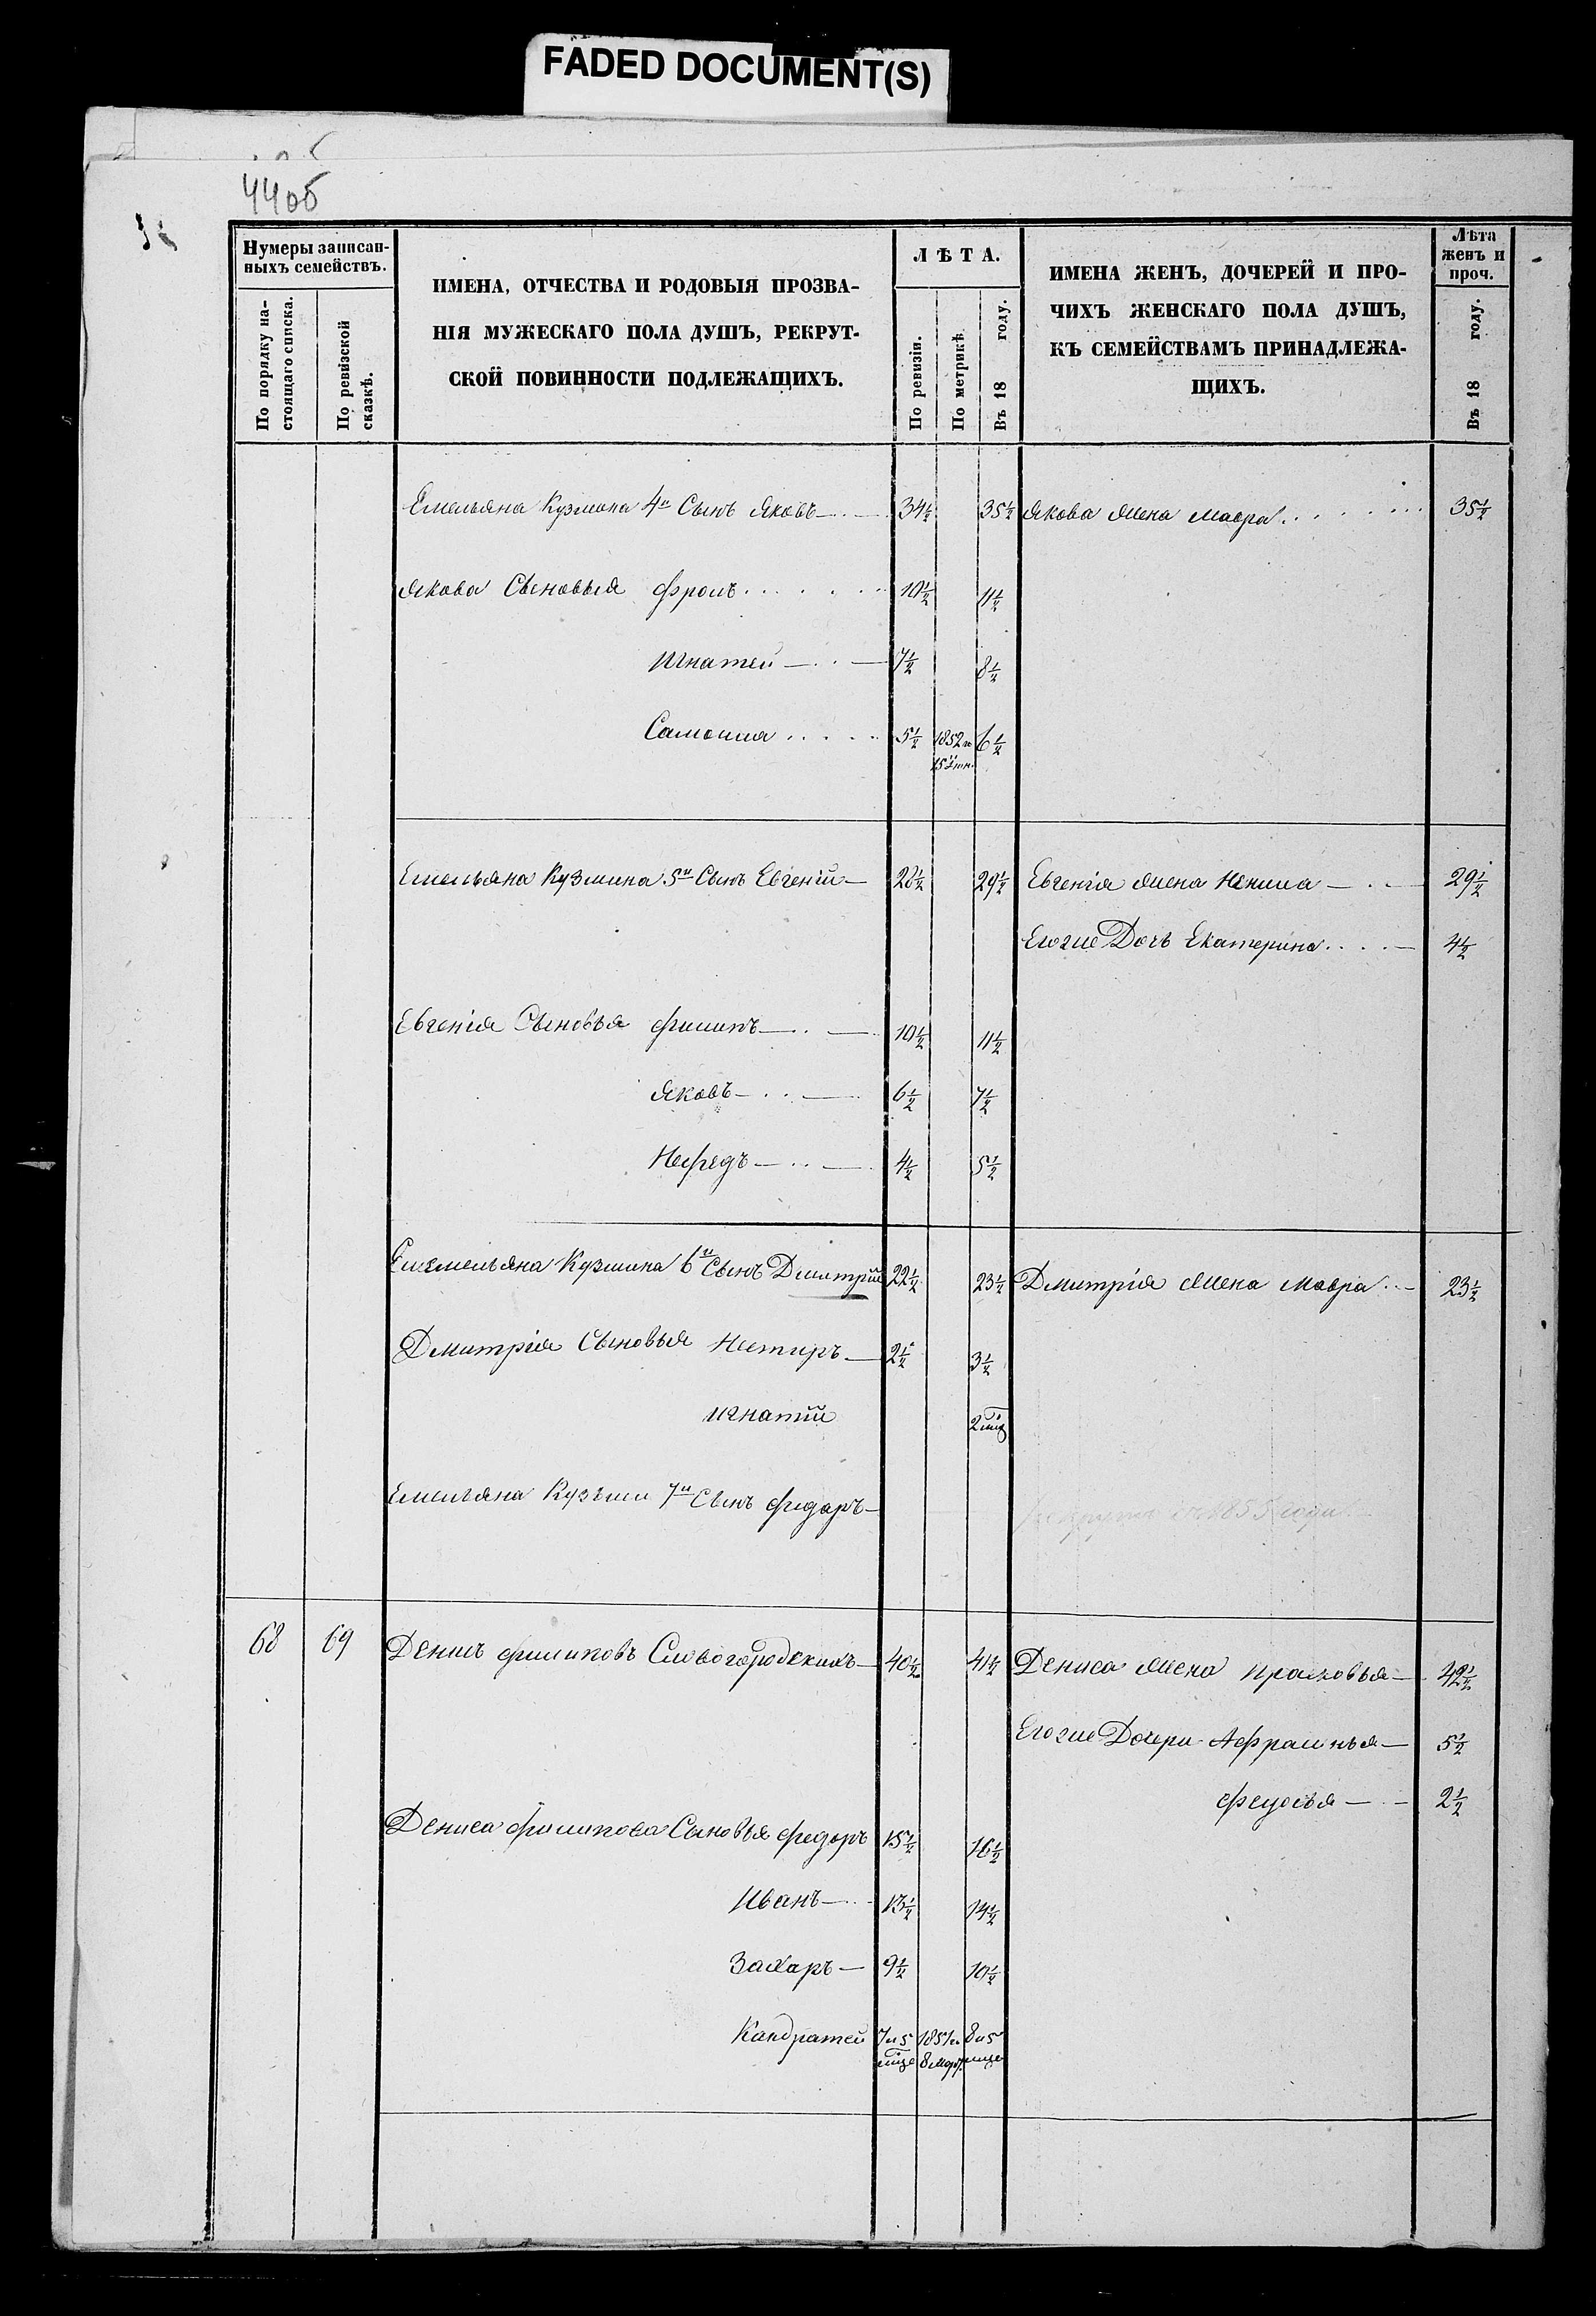 FADED DOCUMENT(S)
44об
Нумеры записан-
ныхъ семействъ.
По порядку на-
стоящаго списка.
По ревизской
сказкѣ.
ИМЕНА, ОТЧЕСТВА И РОДОВЫЯ ПРОЗВА-
НІЯ МУЖЕСКАГО ПОЛА ДУШЪ, РЕКРУТ-
СКОЙ ПОВИННОСТИ ПОДЛЕЖАЩИХЪ.
ЛѢТА.
По ревизіи.
По метрикѣ
Въ 18 году.
ИМЕНА ЖЕНЪ, ДОЧЕРЕЙ И ПРО-
ЧИХЪ ЖЕНСКАГО ПОЛА ДУШЪ,
КЪ СЕМЕЙСТВАМЪ ПРИНАДЛЕЖА-
ЩИХЪ.
Лѣта
женъ и
проч.
Въ 18 году.
Емельяна Кузмина 4й Сынъ Яковъ 34½ 35½ Якова Жена Мавра 35½
Якова Сыновья Фролъ 10½ 11½
Игнатей 7½ 8½
5½ 1852 6½
Емельяна Кузмина 5й Сынъ Евгеній 28½ 29½ Евгенія Жена 29½
Егоже Дочь Екатерина 4½
Евгенія Сыновья Филипъ 10½ 11½
Яковъ 6½ 7½
Нефедъ 4½ 5½
Кузмина 6й Сынъ Дмитрій 22½ 23½ Дмитрія Жена Мавра 23½
Дмитрія Сыновья Нестиръ 2½ 3½
Игнатій
Емельяна 7й Сынъ Фидаръ
1855 года
68 69 Денисъ Филиповъ 40½ 41½ Дениса Жена Прасковья 42½
Егоже Дочери 5½
Федосья 2½
Дениса Филипова Сыновья Федоръ 15½ 16½
Иванъ 13½ 14½
Захаръ 9½ 10½
Кандратей 7 и 5 1851 8 и 5